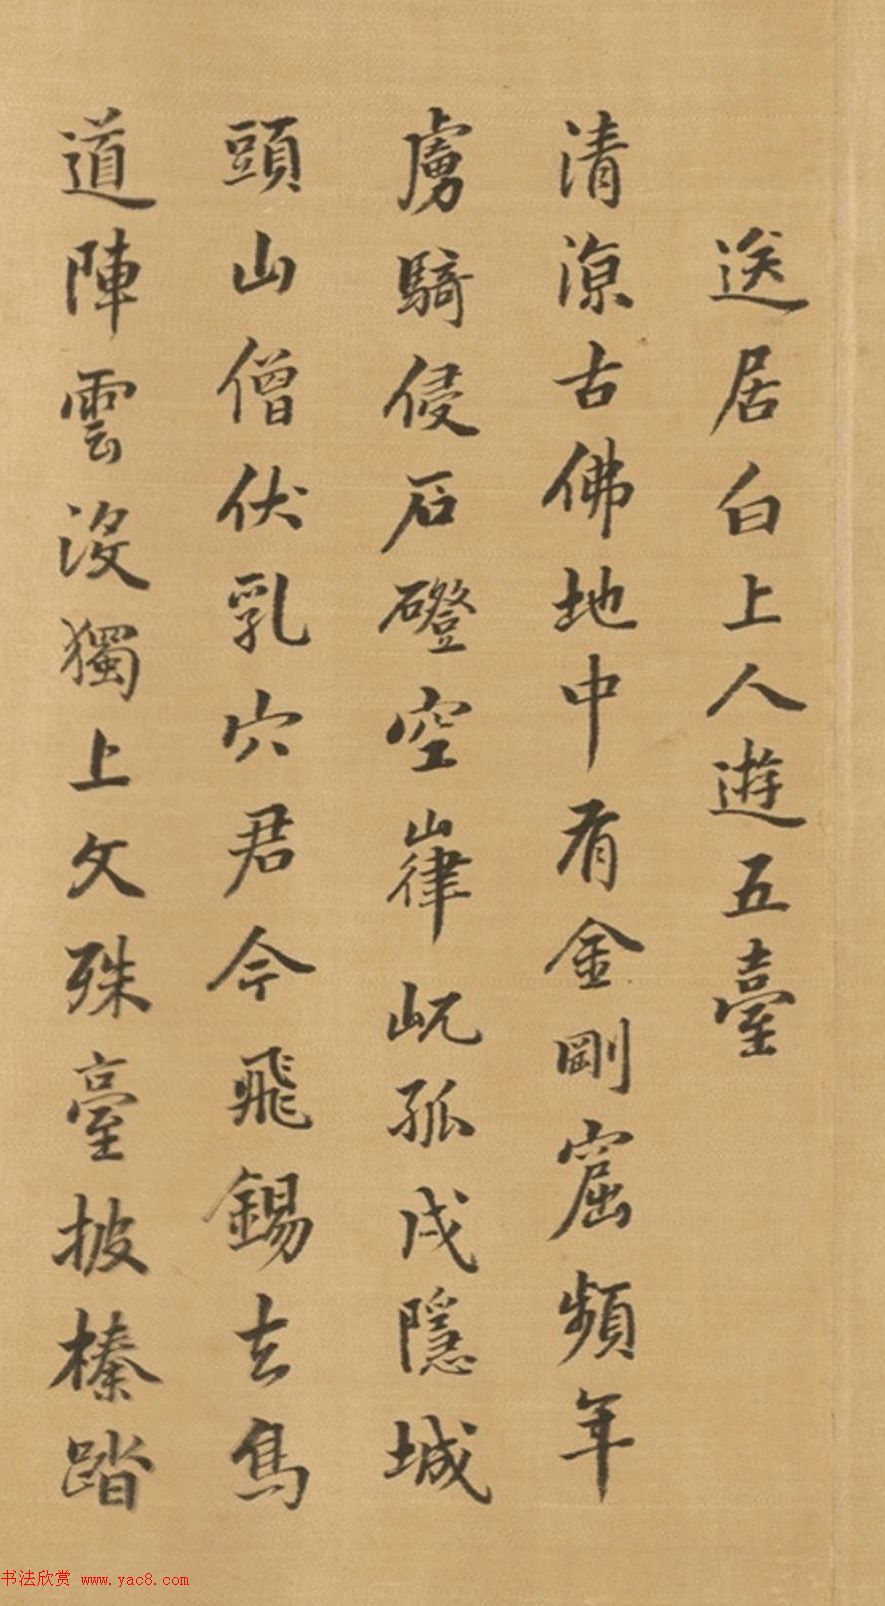 送居白上人遊五臺
清涼古佛地中有金剛窟頻年
虜騎侵石磴空嵂屼孤戍隱城
頭山僧伏乳穴君今飛錫去鳥
道陣雲沒獨上文殊臺披榛踏
书法欣赏 www.yac8.com